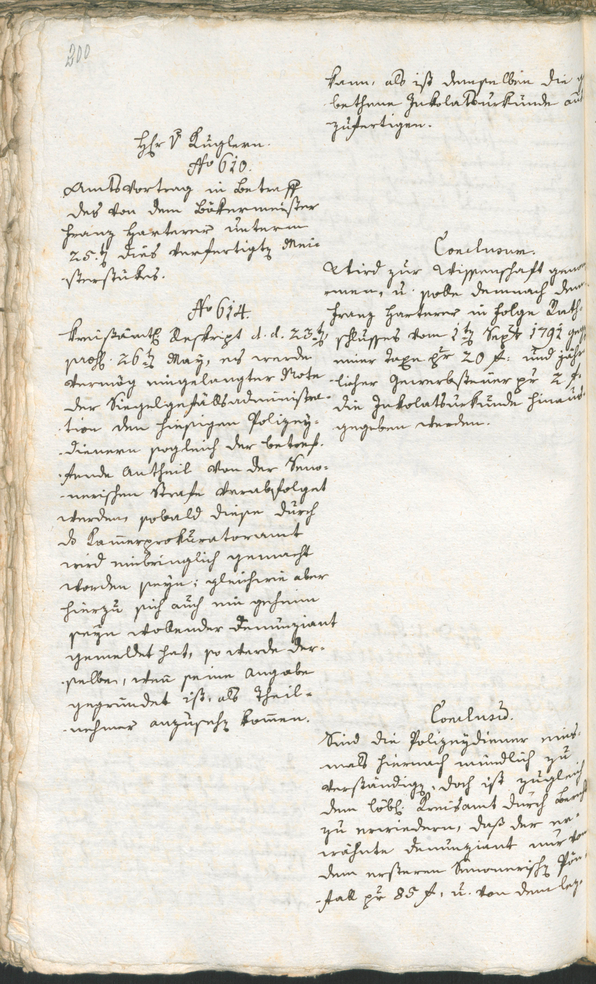 200
Hr v Kuglern.
No 610.
Amtsvortrag in Betreff
des von dem Bökermeister
Franz Harterer unterm
25.t dies verfertigtz Mei-
sterstükes.
No 614.
Kreisämtl. Reskript d. d. 23.t
prs. 26t May, es werde
vermög eingelangter Note
der Siegelgefällsadministra-
tion den hiesigen Polizey-
dienern sogleich der betref-
fende Antheil von der Seno-
nerischen Strafe verabfolget
werden, sobald diese durch
ds Kammerprokuratoramt
wird einbringlich gemacht
worden seyn; gleichwie aber
hierzu sich auch ein geheim
seyn wollender Denunziant
gemeldet hat, so werde der-
selbe, wenn seine Angabe
gegründet ist, als Theil-
nehmer anzusehz kommen.
kann, als ist demselben die
bethene Inkolatsurkunde aus
zufertigen.
Conclusum.
Wird zur Wissenschaft genom
men, u. solle demnach dem
Franz Harterer in folge Rath
schlusses vom 1t Sept 1791
einer Taxe pr 20 f. und jähr
licher Gewerbsteuer pr 2 f.
die Inkolatsurkunde hinaus-
gegeben werden.
Conclus.
Sind die Polizeydiener
mals hiernach mündlich zu
verständigz, doch ist zugleich
dem löbl. Kreisamt durch Bericht
zu erwiedern, daß der er-
wähnte Denunziant nur von
dem ersteren Senonerisch Pön-
fall pr 85 f, u. von dem lez-